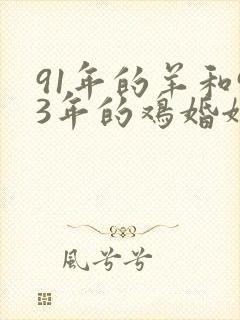 91年的羊和9
3年的鸡婚姻
風兮兮